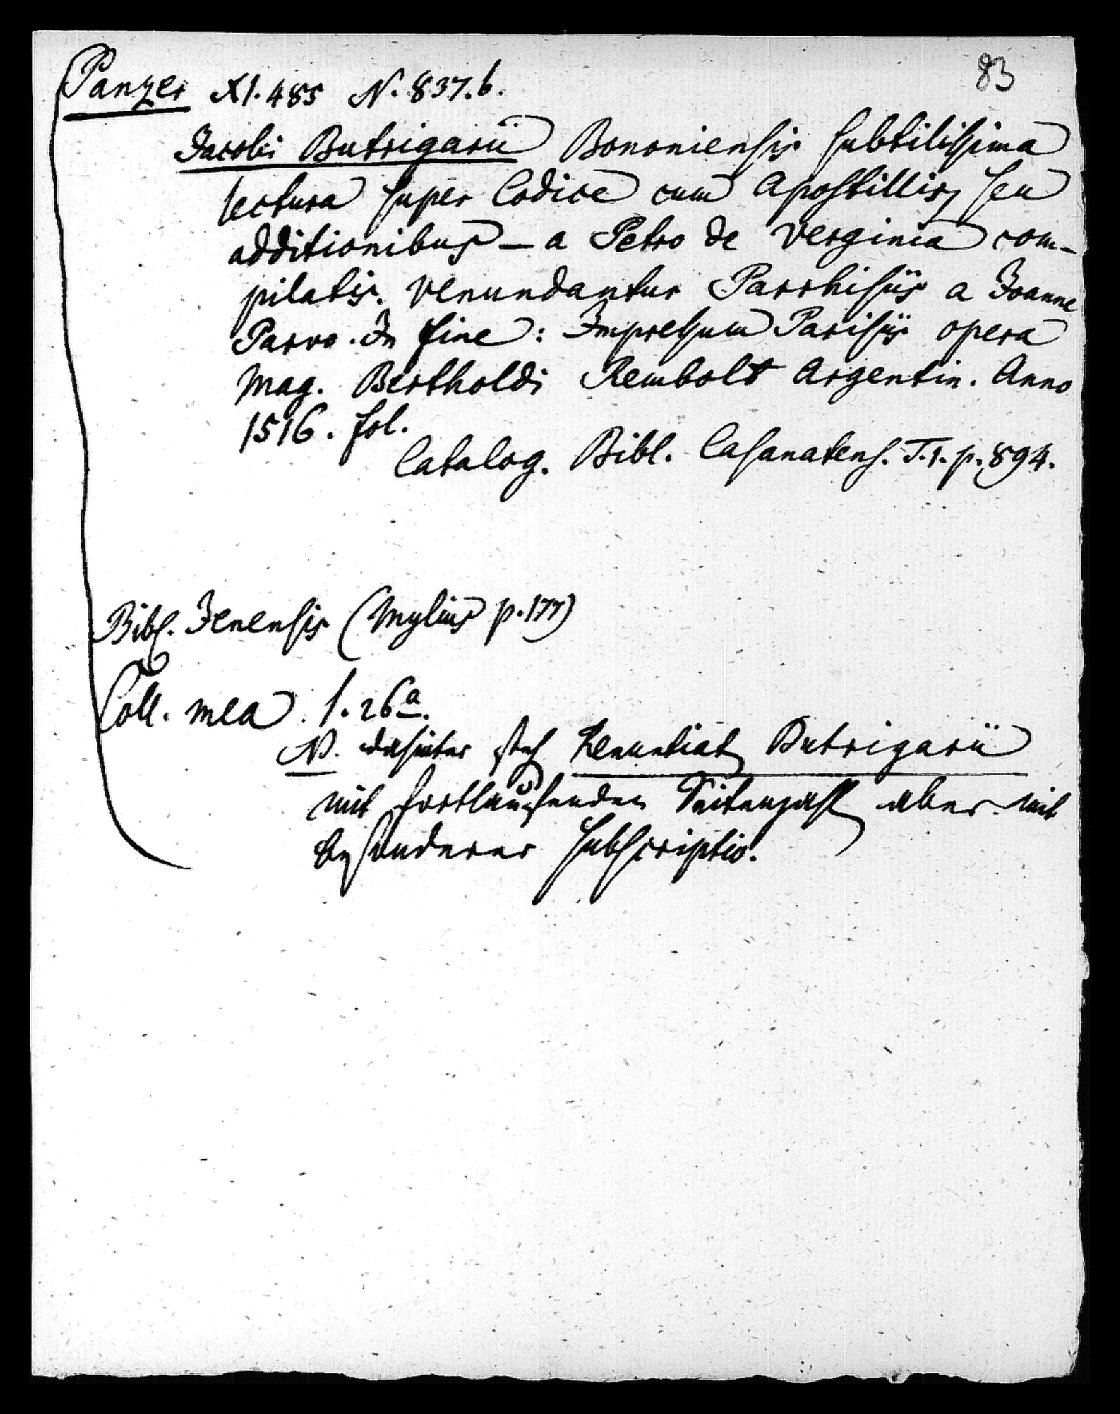 83
Panzer XI. 485 N. 837.b.
Jacobi Butrigarii Bononiensis subtilissima
lectura super Codice cum Apostillis, seu
additionibus – a Petro de Verginia com-
pilatis. Venundantur Parrhisiis a Joanne
Parvo. In fine: Impressum Parisijs opera
Mag. Bertholdi Rembolt Argentin. Anno
1516. fol.
Catalog. Bibl. Casanatens. T. 1. p. 894.
Bibl. Jenensis (Mylius p. 177)
Coll. mea. 1. 26a.
N. dahinter steh Butrigarii
mit fortlaufenden Seitenzahl aber mit
besonderer subscriptio.